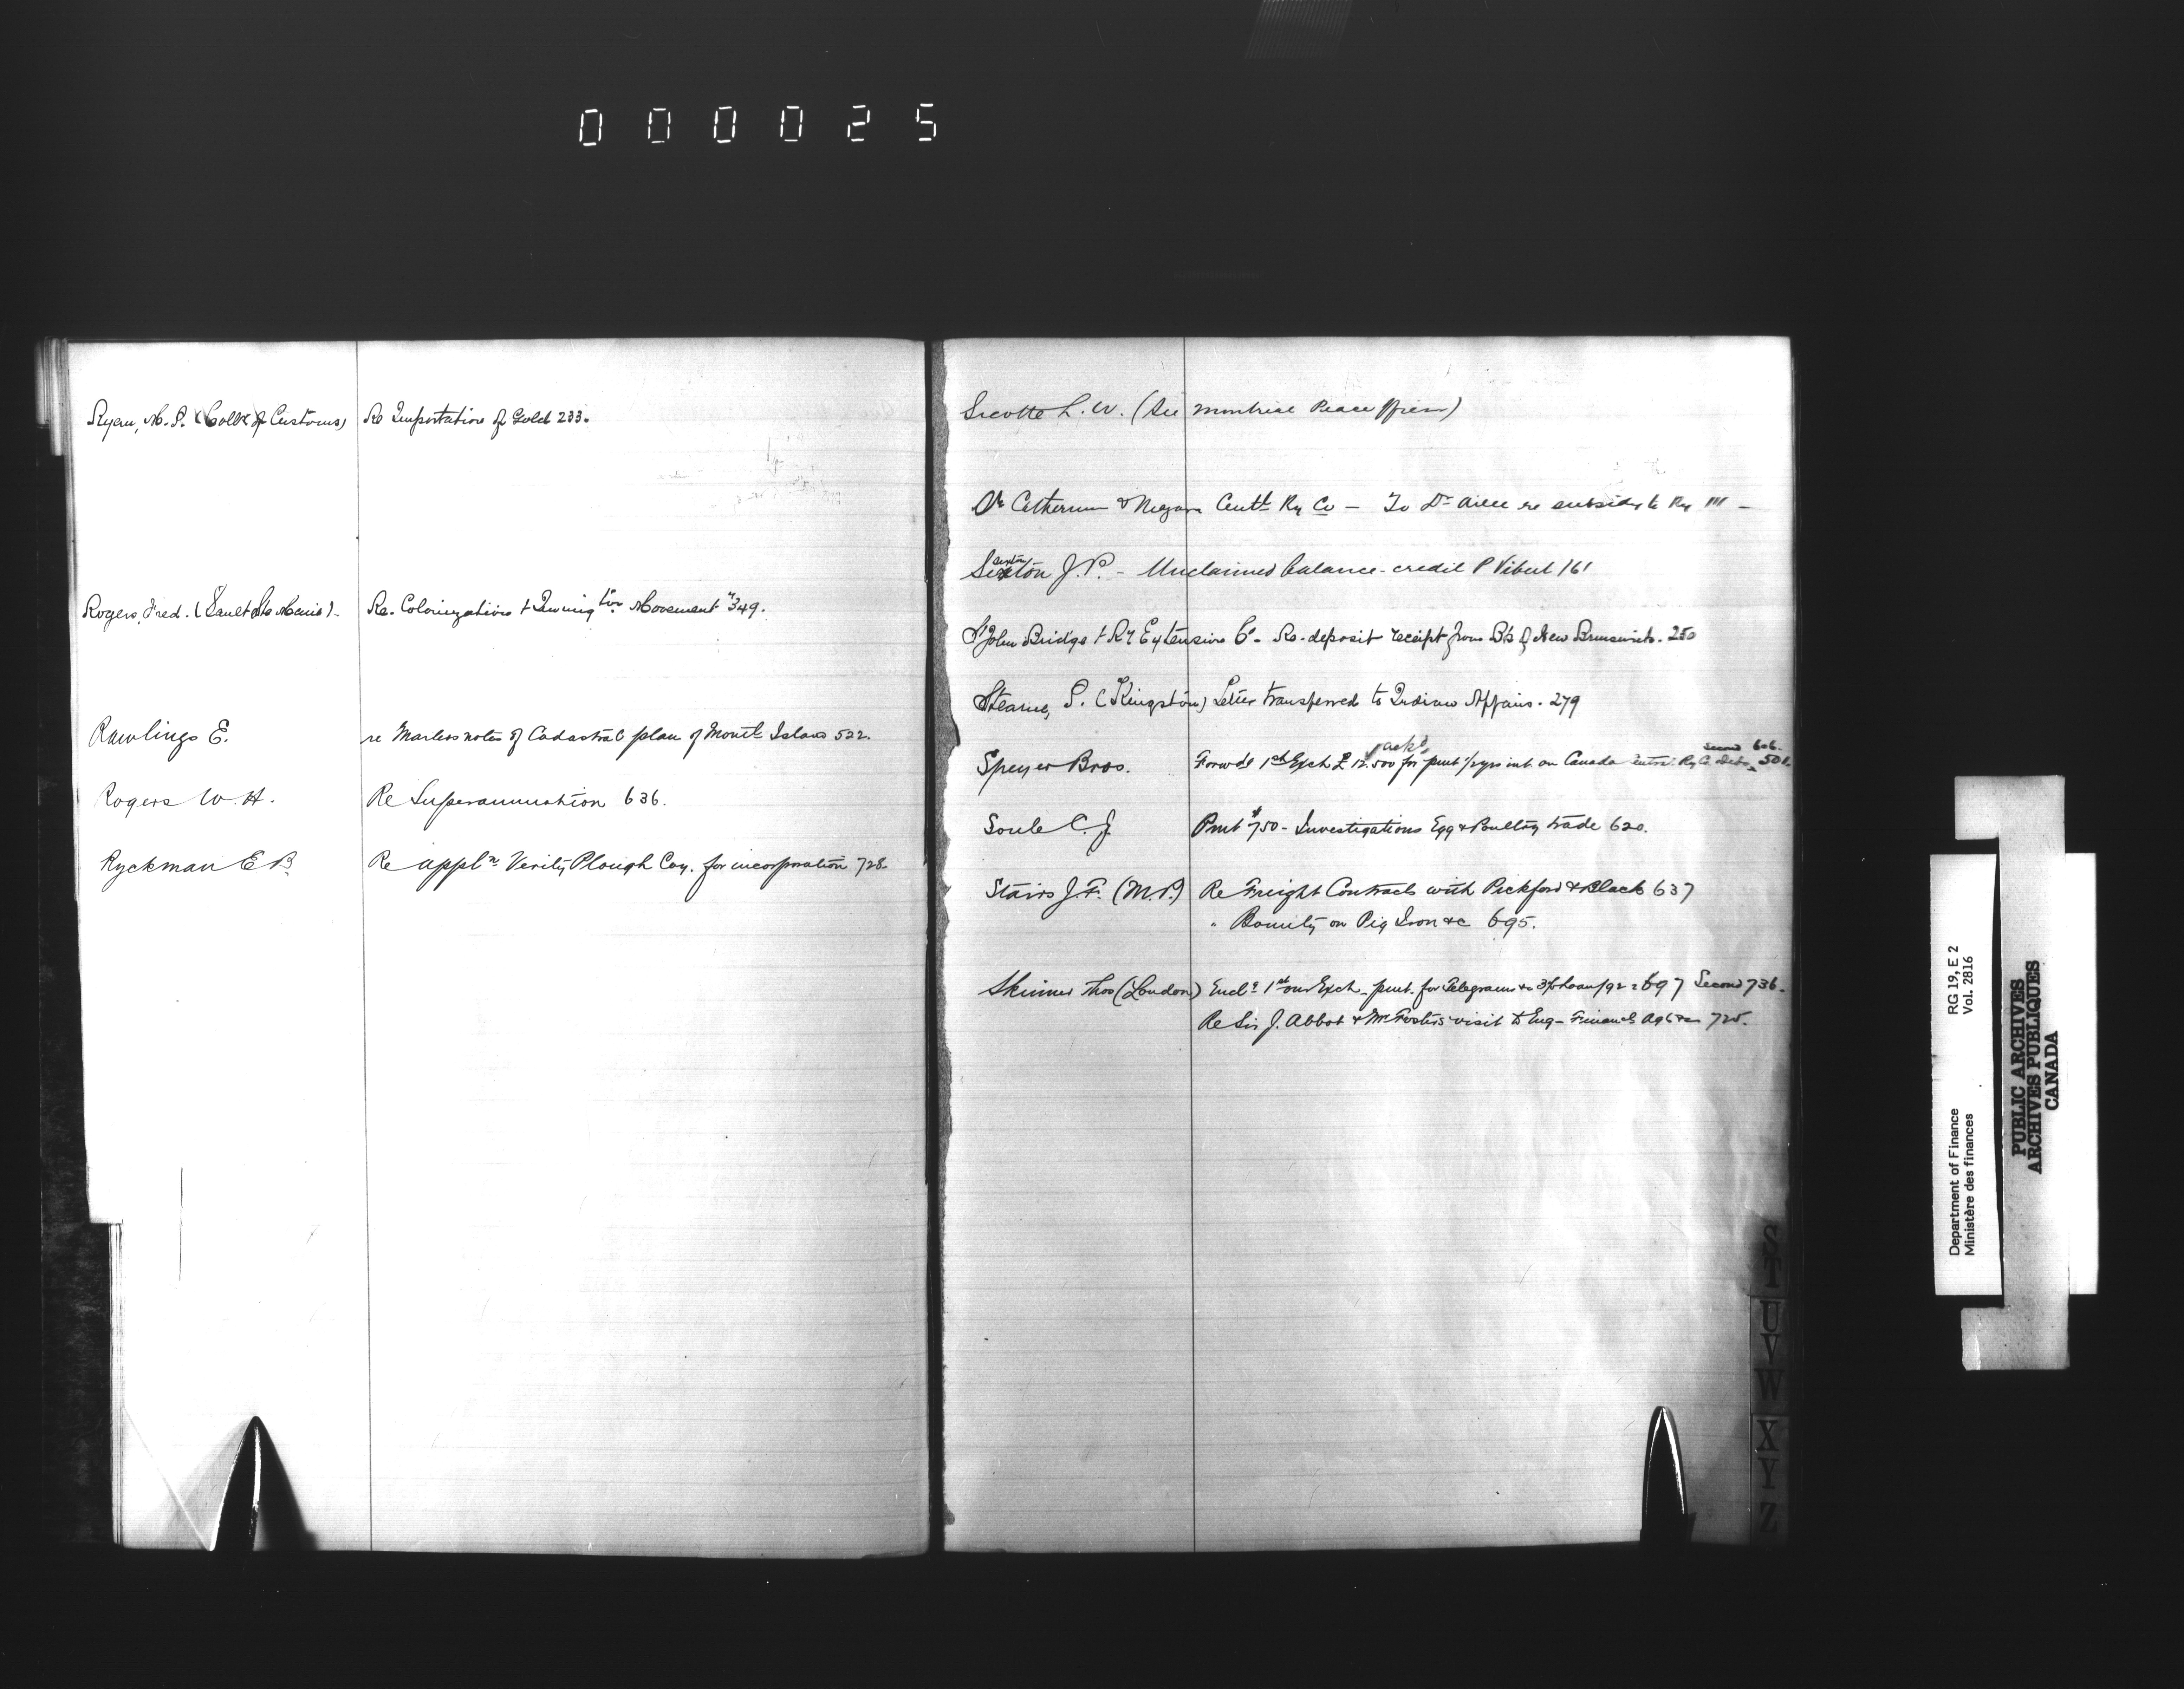 000025
Ryan, M. P. (Collr of Customs) Re Importation of Gold 233.
Rogers, Fred. (Sault Ste Marie) - Re. Colonization & Immigtion Movement 349.
Rawlings E. re Marless notes of Cadastral plan of Montl Island 522.
Rogers W. H. Re Superannuation 636.
Ryckman E B. Re appln Verity Plough Coy. for incorporation 728
Sicotte L. W. (See Montreal Peace Officer)
St Catherines & Niagara Centl Ry Co - To Dr re subsidy to Ry 111 -
Sexton J. P. - Unclaimed balance - credit P Vibert 161
St John Bridge & Ry Extension Co - Re - deposit receipt from Bk of New Brunswick. 250
Stearne, S. (Kingston) Letter transferred to Indian Affairs. 279
ackd second 606.
Speyer Bros. Forwdg 1st Exch £ 12.500 for pmt 1/2 yrs int. on Canada Central Ry Co Debs 501.
Soule C. J Pmt $750 - Investigations Egg & Poultry trade 620.
Stairs J. F. (M.P.) Re Freight Contracts with Pickford & Black 637
" Bounty on Pig Iron &c 695.
Skinner Thos (London) Encl 1st our Exch - pmt. for Telegrams re 3% Loan /92 = 697 Second 736.
Re Sir J. Abbot & Mr Fosters visit to Eng - Financl Agts 725.
S
T
U
V
W
X
Y
Z
Department of Finance RG 19, E 2
Ministère des finances Vol. 2816
PUBLIC ARCHIVES
ARCHIVES PUBLIQUES
CANADA